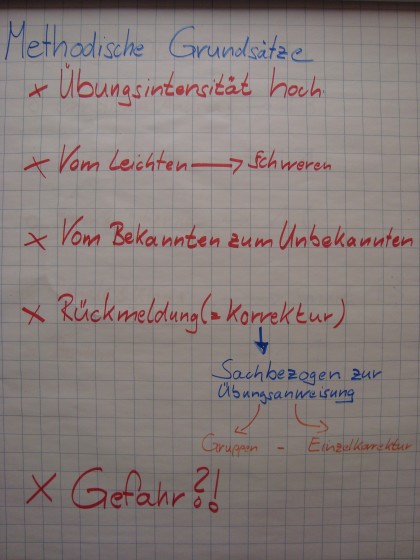 Methodische Grundsätze
x Übungsintensität hoch.
x Vom Leichten → schweren
x Vom Bekannten zum Unbekannten
x Rückmeldung (= Korrektur)
Sachbezogen zur
Übungsanweisung
Gruppen - Einzelkorrektur
x Gefahr?!